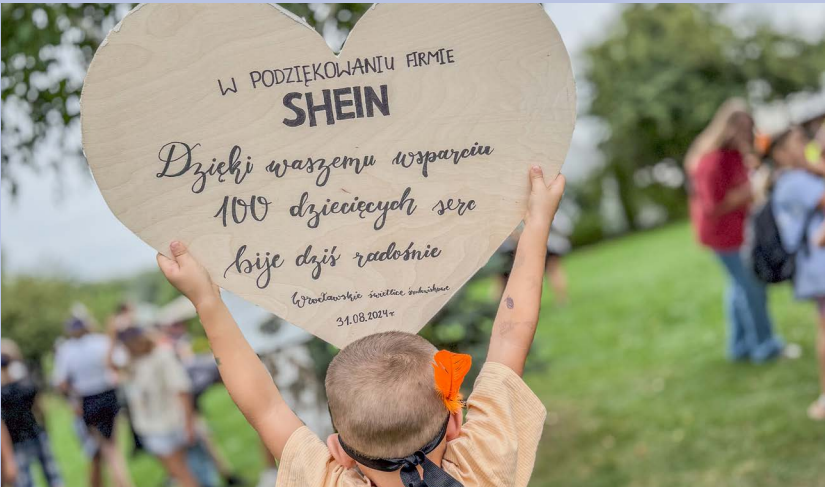 W PODZIĘKOWANIU FIRMIE
SHEIN
Dzięki waszemu wsparciu
100 dziecięcych serc
bije dziś radośnie
Wrocławskie świetlice środowiskowe
31.08.2024r